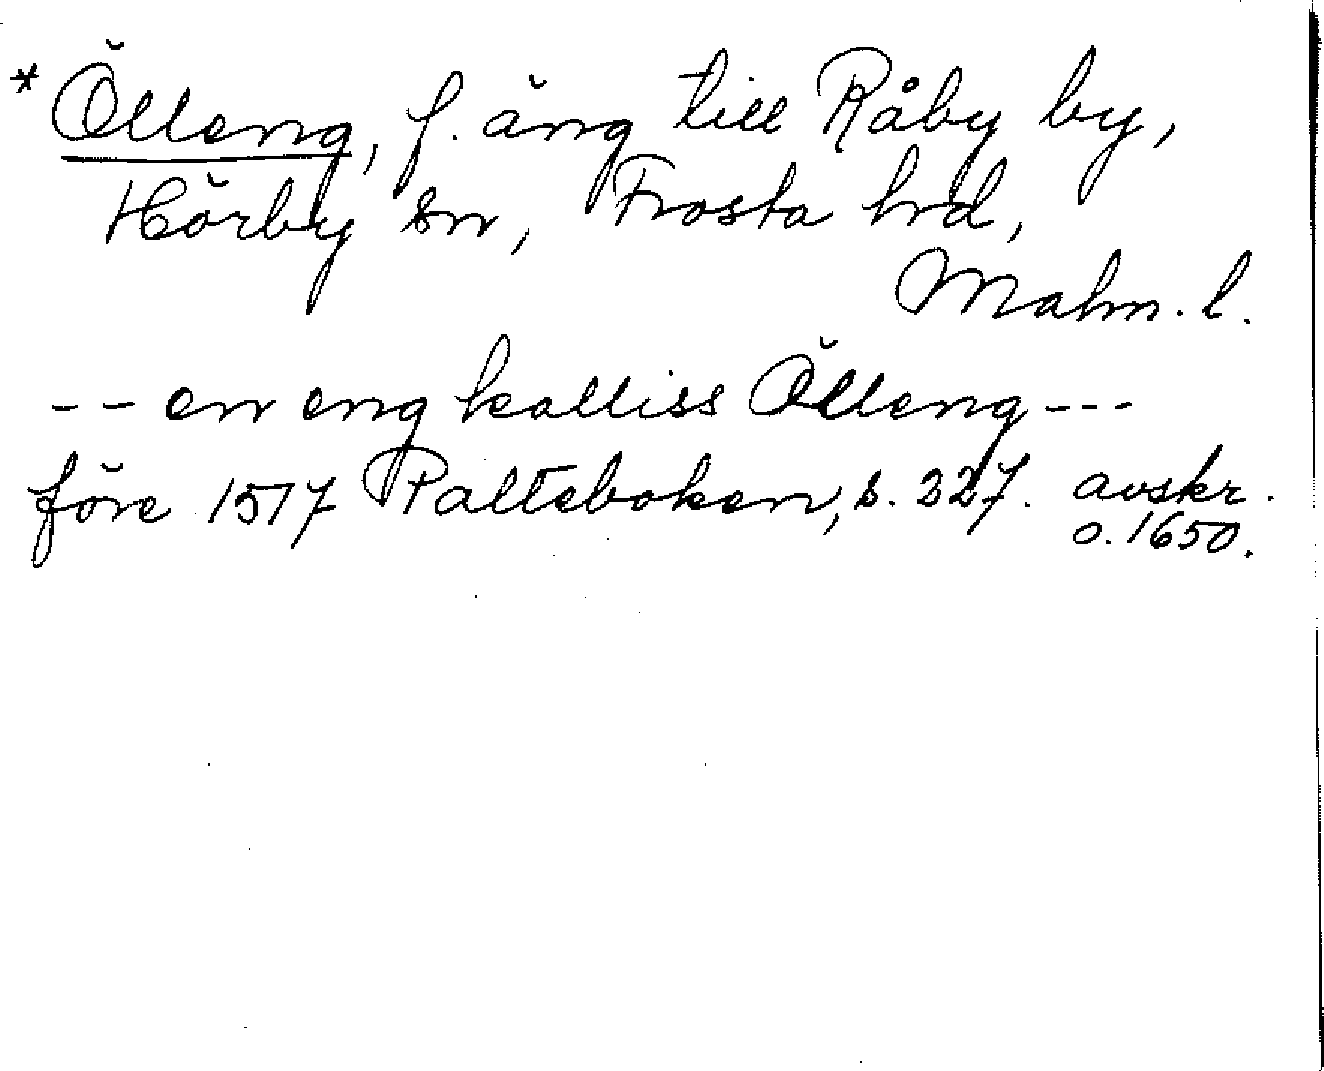 * Ölleng, f. äng till Råby by,
Hörby sn, Frosta hrd,
Malm. l.
-- en eng kalliss Ölleng ---
före 1517 Palteboken, s. 227. avskr.
o. 1650.